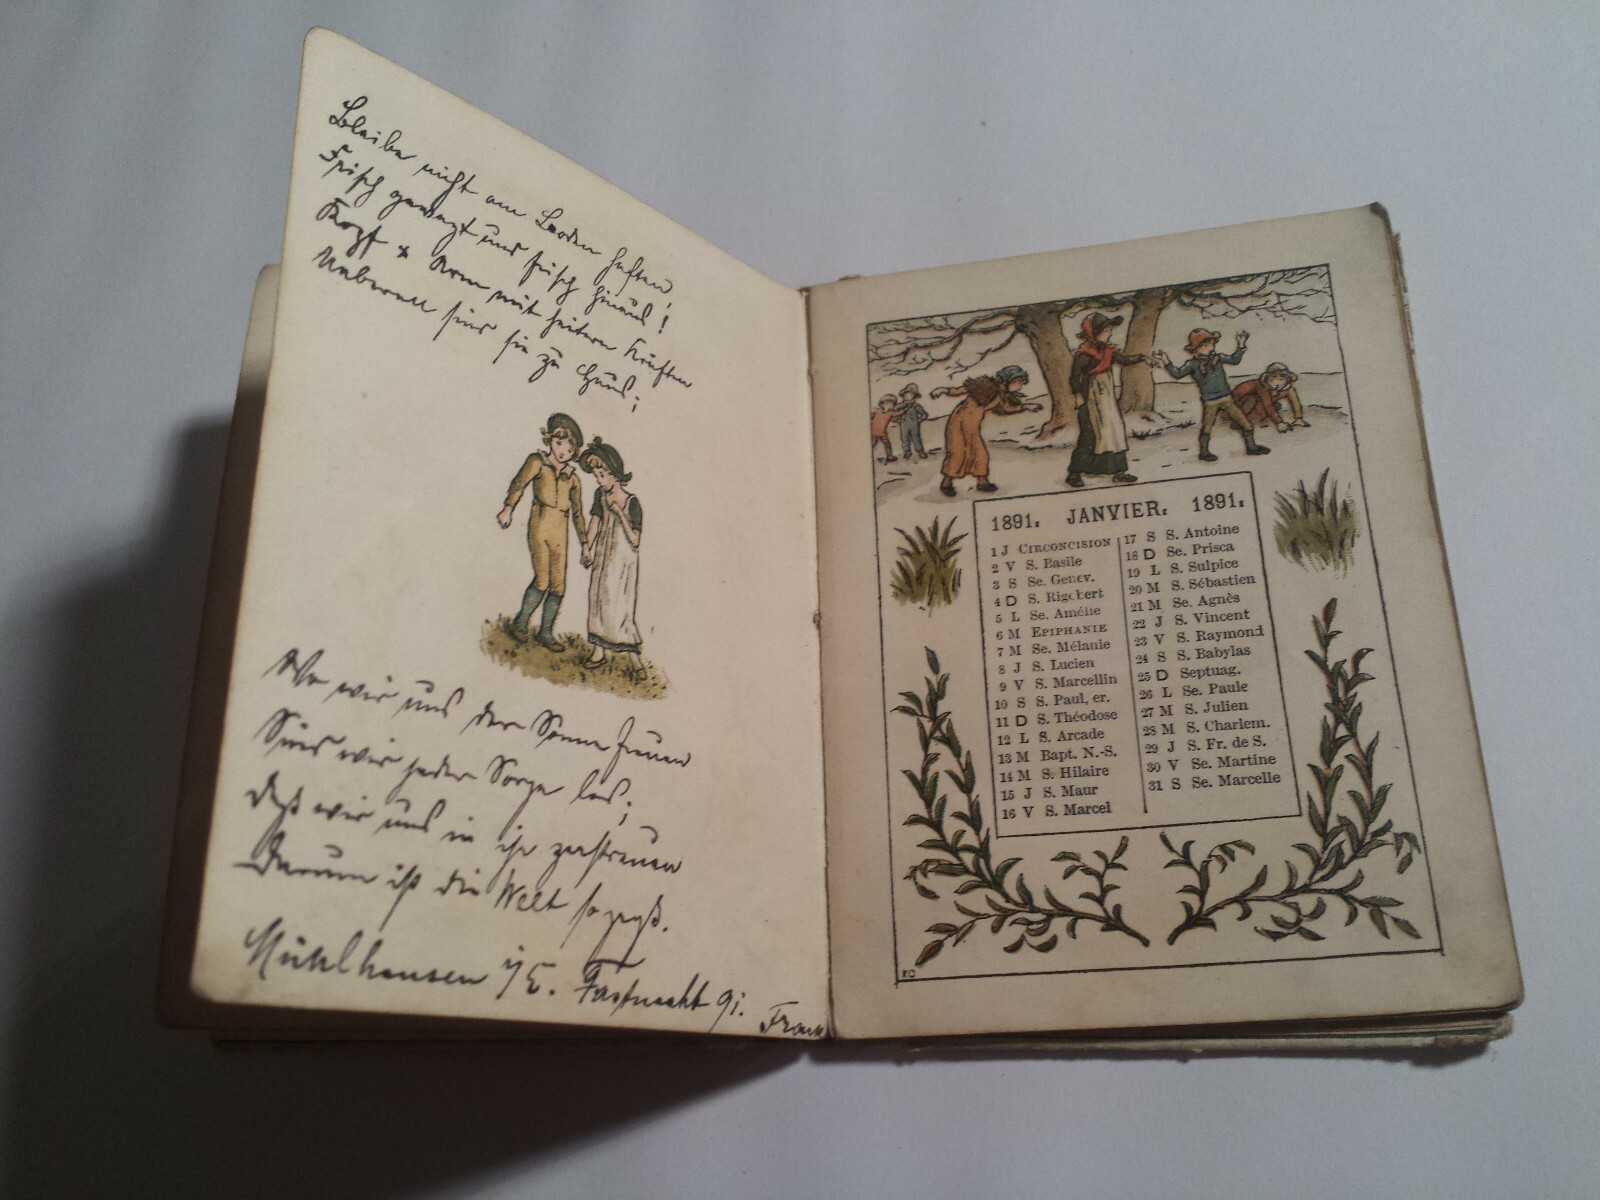 Bleibe nicht am Boden heften;
Frisch gewagt und frisch hinaus!
Kopf & Arm mit heitern Kräften
Ueberall sind sie zu Haus;
Wo wir uns der Sonne freuen
Sind wir jeder Sorge los;
Daß wir uns in ihr zerstreuen
Darum ist die Welt so groß.
Mühlhausen i/E. Fastnacht 91.
1891. JANVIER. 1891.
1 J CIRCONCISION
2 V S. Basile
3 S Se. Genev.
4 D S. Rigobert
5 L Se. Amélie
6 M EPIPHANIE
7 M Se. Mélanie
8 J S. Lucien
9 V S. Marcellin
10 S S. Paul, er.
11 D S. Théodose
12 L S. Arcade
13 M Bapt. N.-S.
14 M S. Hilaire
15 J S. Maur
16 V S. Marcel
17 S S. Antoine
18 D Se. Prisca
19 L S. Sulpice
20 M S. Sébastien
21 M Se. Agnès
22 J S. Vincent
23 V S. Raymond
24 S S. Babylas
25 D Septuag.
26 L Se. Paule
27 M S. Julien
28 M S. Charlem.
29 J S. Fr. de S.
30 V Se. Martine
31 S Se. Marcelle
KG